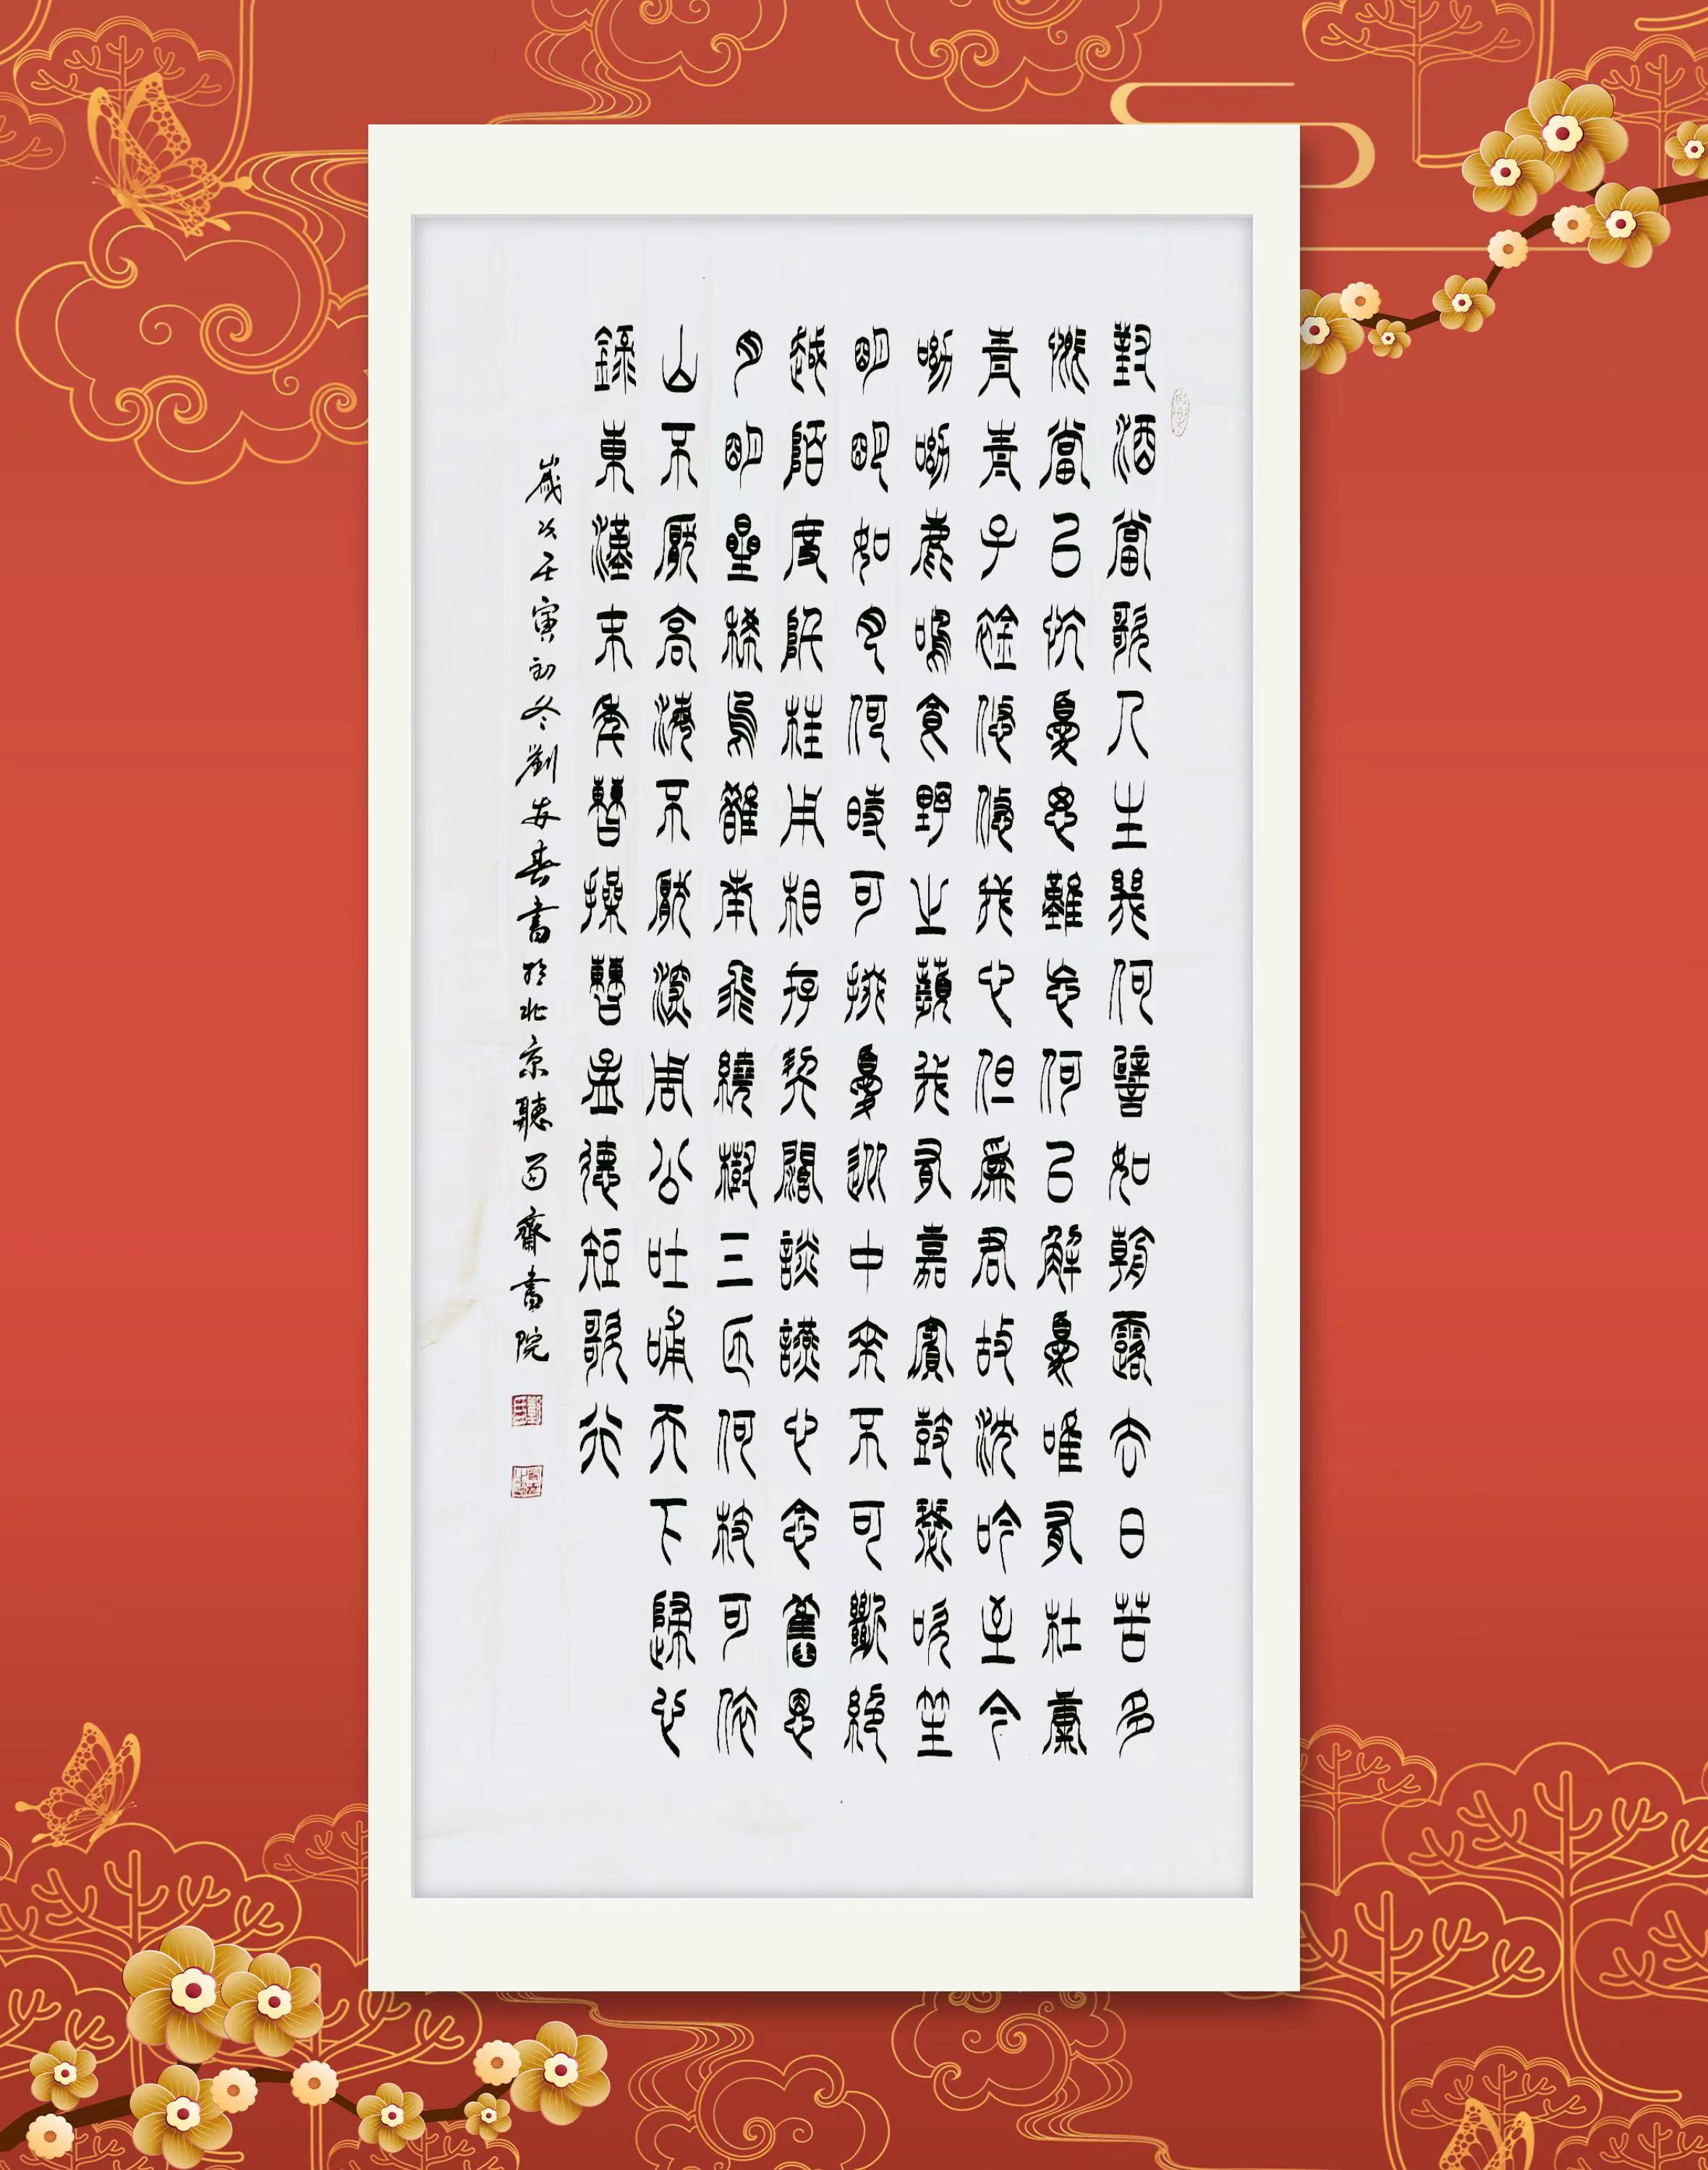 對酒當歌人生幾何譬如朝露去日苦多
慨當以忼憂思難忘何以解憂唯有杜康
青青子衿悠悠我心但為君故沈吟至今
呦呦鹿鳴食野之蘋我有嘉賓鼓瑟吹笙
明明如月何時可掇憂從中來不可斷絕
越陌度阡枉用相存契闊談讌心念舊恩
月明星稀烏鵲南飛繞樹三匝何枝可依
山不厭高海不厭深周公吐哺天下歸心
錄東漢末年曹操曹孟德短歌行
歲次壬寅初冬劉安春書於北京聽雨齋書院